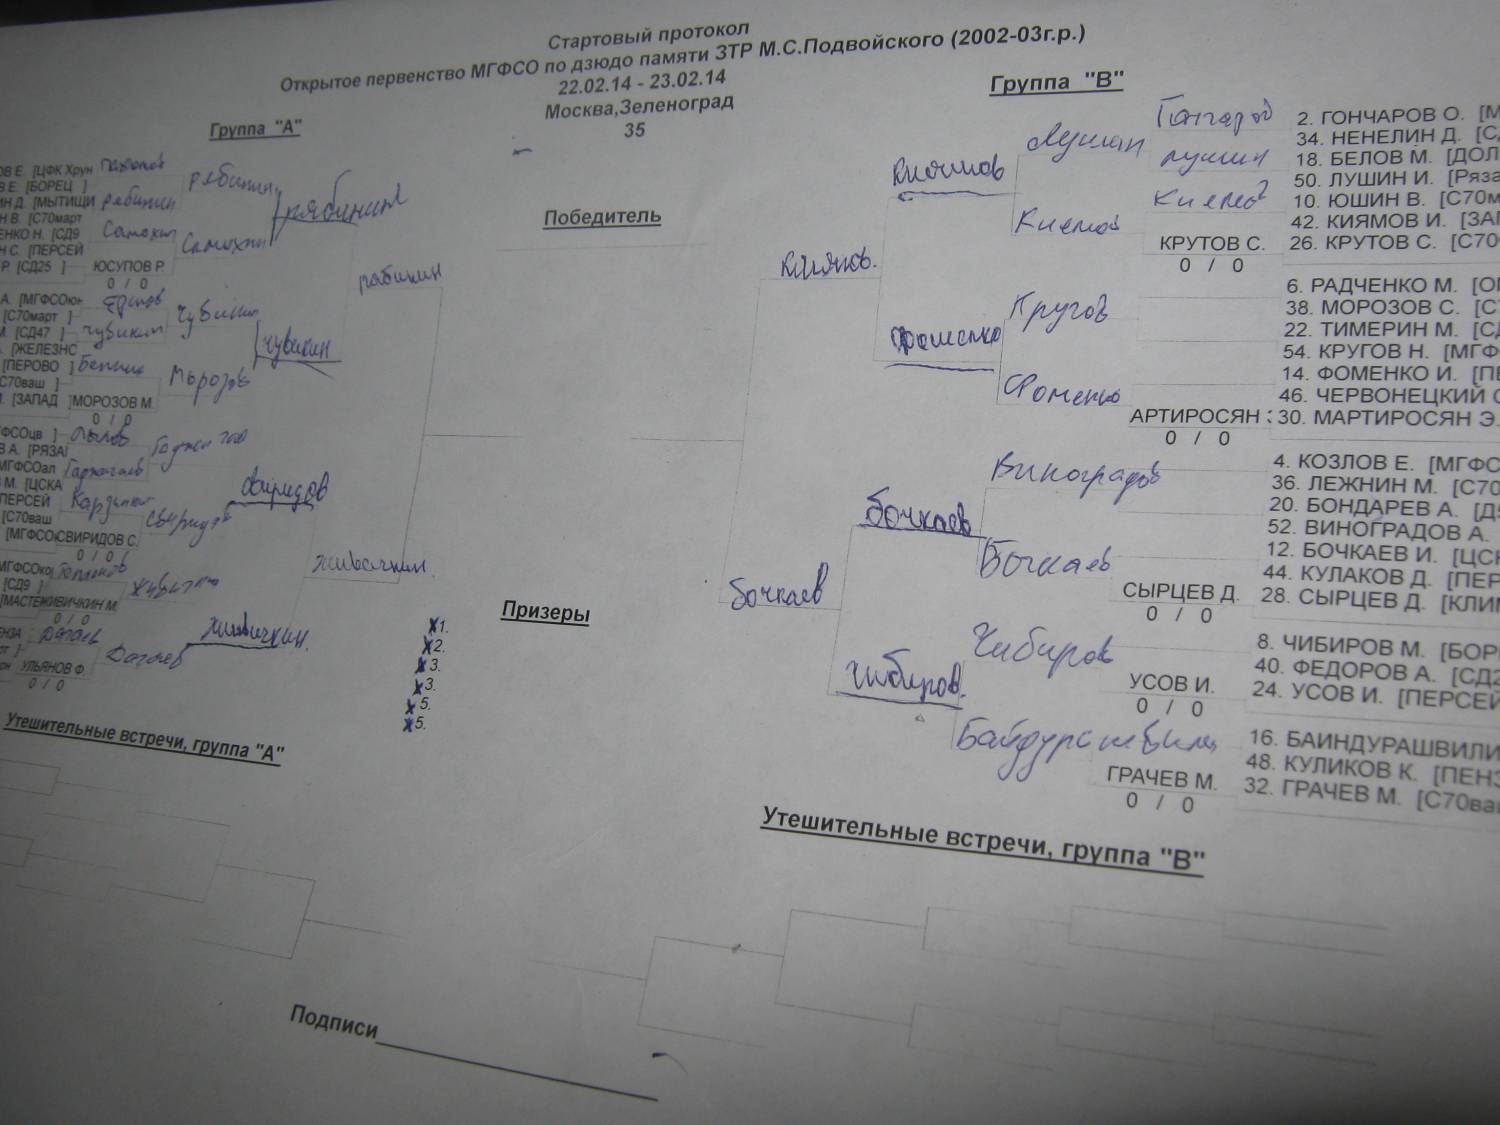 Стартовый протокол
Открытое первенство МГФСО по дзюдо памяти ЗТР М.С.Подвойского (2002-03г.р.)
22.02.14 - 23.02.14
Москва,Зеленоград
35
Группа "А"
ОВ Е. [ЦФК Хрун
В Е. [БОРЕЦ ]
ИН Д. [МЫТИЩИ
Н В. [С70март
ЕНКО Н. [СД9
Н С. [ПЕРСЕЙ
Р. [СД25 ]
ЮСУПОВ Р.
0 / 0
рябинин
Самохин
рябинин
Самохин
рябинин
рябинин
А. [МГФСОюн
[С70март ]
М. [СД47 ]
[ЖЕЛЕЗНС
[ПЕРОВО ]
С70ваш ]
[ЗАПАД
МОРОЗОВ М.
0 / 0
Чувикин
Чувикин
Морозов
Чувикин
ФСОцв ]
В А. [РЯЗАН
МГФСОал
М. [ЦСКА
ПЕРСЕЙ
[С70ваш
[МГФСО
СВИРИДОВ С.
0 / 0
Свиридов
Свиридов
МГФСОко
[СД9 ]
[МАСТЕ
ЖИВИЧКИН М.
0 / 0
УЛЬЯНОВ Ф.
0 / 0
Живичкин
живичкин
Победитель
Призеры
х1.
х2.
х3.
х3.
х5.
х5.
Группа "В"
2. ГОНЧАРОВ О. [М
34. НЕНЕЛИН Д. [СД
18. БЕЛОВ М. [ДОЛ
50. ЛУШИН И. [Ряза
10. ЮШИН В. [С70м
42. КИЯМОВ И. [ЗАП
26. КРУТОВ С. [С70
КРУТОВ С.
0 / 0
Гончаров
лушин
Киямов
Лушин
Киямов
Киямов
Киямов
6. РАДЧЕНКО М. [ОГ
38. МОРОЗОВ С. [С
22. ТИМЕРИН М. [СД
54. КРУГОВ Н. [МГФ
14. ФОМЕНКО И. [ПЕ
46. ЧЕРВОНЕЦКИЙ С
30. МАРТИРОСЯН Э.
АРТИРОСЯН Э
0 / 0
Кругов
Фоменко
Фоменко
4. КОЗЛОВ Е. [МГФС
36. ЛЕЖНИН М. [С70
20. БОНДАРЕВ А. [Д
52. ВИНОГРАДОВ А.
12. БОЧКАЕВ И. [ЦСК
44. КУЛАКОВ Д. [ПЕР
28. СЫРЦЕВ Д. [КЛИ
СЫРЦЕВ Д.
0 / 0
Виноградов
Бочкаев
Бочкаев
Бочкаев
8. ЧИБИРОВ М. [БОР
40. ФЕДОРОВ А. [СД2
24. УСОВ И. [ПЕРСЕЙ
УСОВ И.
0 / 0
Чибиров
Чибиров.
16. БАИНДУРАШВИЛИ
48. КУЛИКОВ К. [ПЕНЗ
32. ГРАЧЕВ М. [С70ваш
ГРАЧЕВ М.
0 / 0
Байдурашвили
Утешительные встречи, группа "А"
Утешительные встречи, группа "В"
Подписи